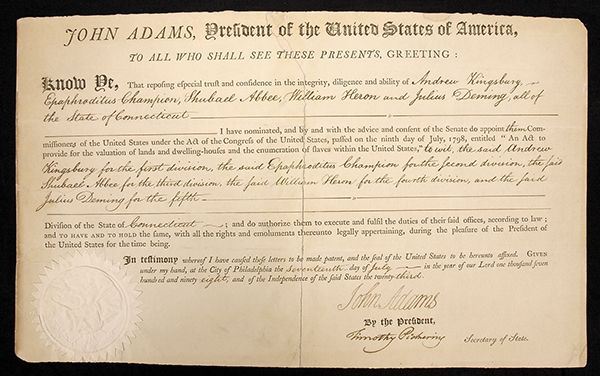 JOHN ADAMS, President of the United States of America,
TO ALL WHO SHALL SEE THESE PRESENTS, GREETING:
Know Ye, That reposing especial trust and confidence in the integrity, diligence and ability of Andrew Kingsbury,
Epaphroditus Champion, Shubael Abbee, William Heron and Julius Deming, all of
the State of Connecticut
I have nominated, and by and with the advice and consent of the Senate do appoint them Com-
missioners of the United States under the Act of the Congress of the United States, passed on the ninth day of July, 1798, entitled "An Act to
provide for the valuation of lands and dwelling-houses and the enumeration of slaves within the United States," to wit, the said Andrew
Kingsbury for the first division, the said Epaphroditus Champion for the second division, the said
Shubael Abbe for the third division, the said William Heron for the fourth division, and the said
Julius Deming for the fifth
Division of the State of Connecticut; and do authorize them to execute and fulfil the duties of their said offices, according to law;
and TO HAVE AND TO HOLD the same, with all the rights and emoluments thereunto legally appertaining, during the pleasure of the President of
the United States for the time being.
In testimony whereof I have caused these letters to be made patent, and the seal of the United States to be hereunto affixed. GIVEN
under my hand, at the City of Philadelphia the Seventeenth day of July in the year of our Lord one thousand seven
hundred and ninety eight, and of the Independence of the said States the twenty-third.
John Adams
By the President,
Timothy Pickering Secretary of State.